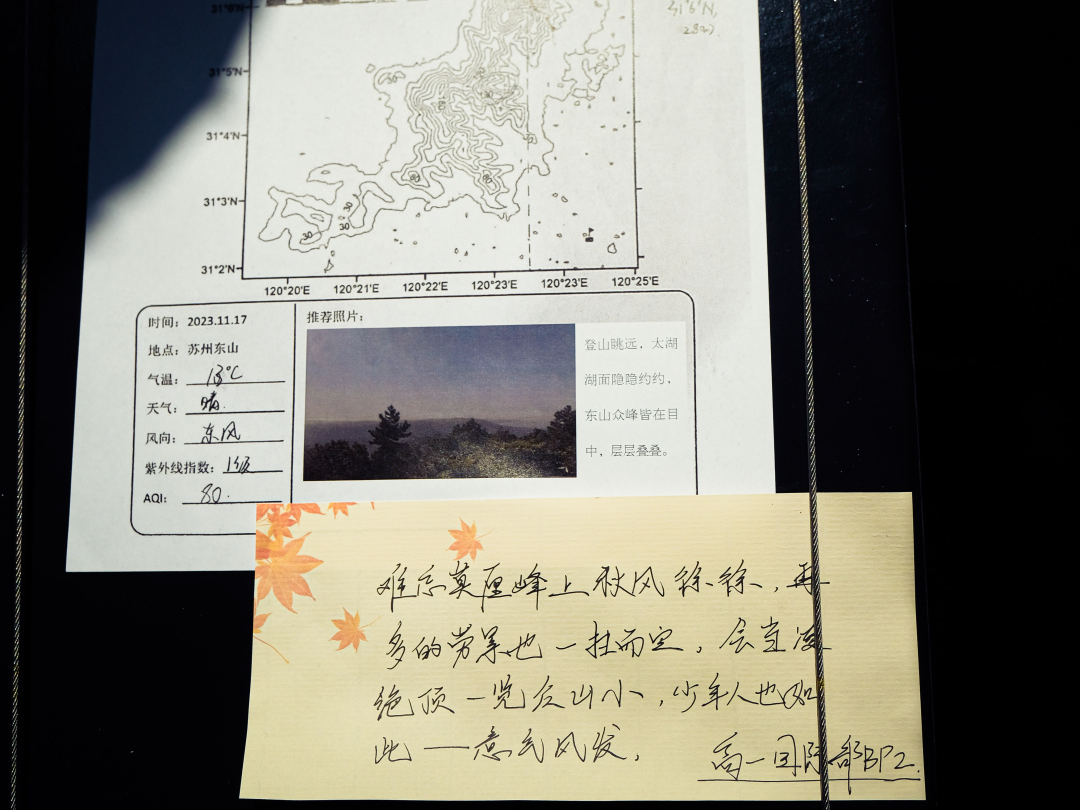 31°6'N
31°6'N,
28m)
31°5'N
31°4'N
31°3'N
31°2'N
30
30
30
120°20'E 120°21'E 120°22'E 120°23'E 120°23'E 120°25'E
时间：2023.11.17
地点：苏州东山
气温：13℃
天气：晴
风向：东风
紫外线指数：1级
AQI：80
推荐照片：
登山眺远，太湖
湖面隐隐约约，
东山众峰皆在目
中，层层叠叠。
难忘莫厘峰上秋风徐徐，再
多的劳累也一扫而空，会当凌
绝顶一览众山小，少年人也如
此——意气风发。
高一国际部BP2.